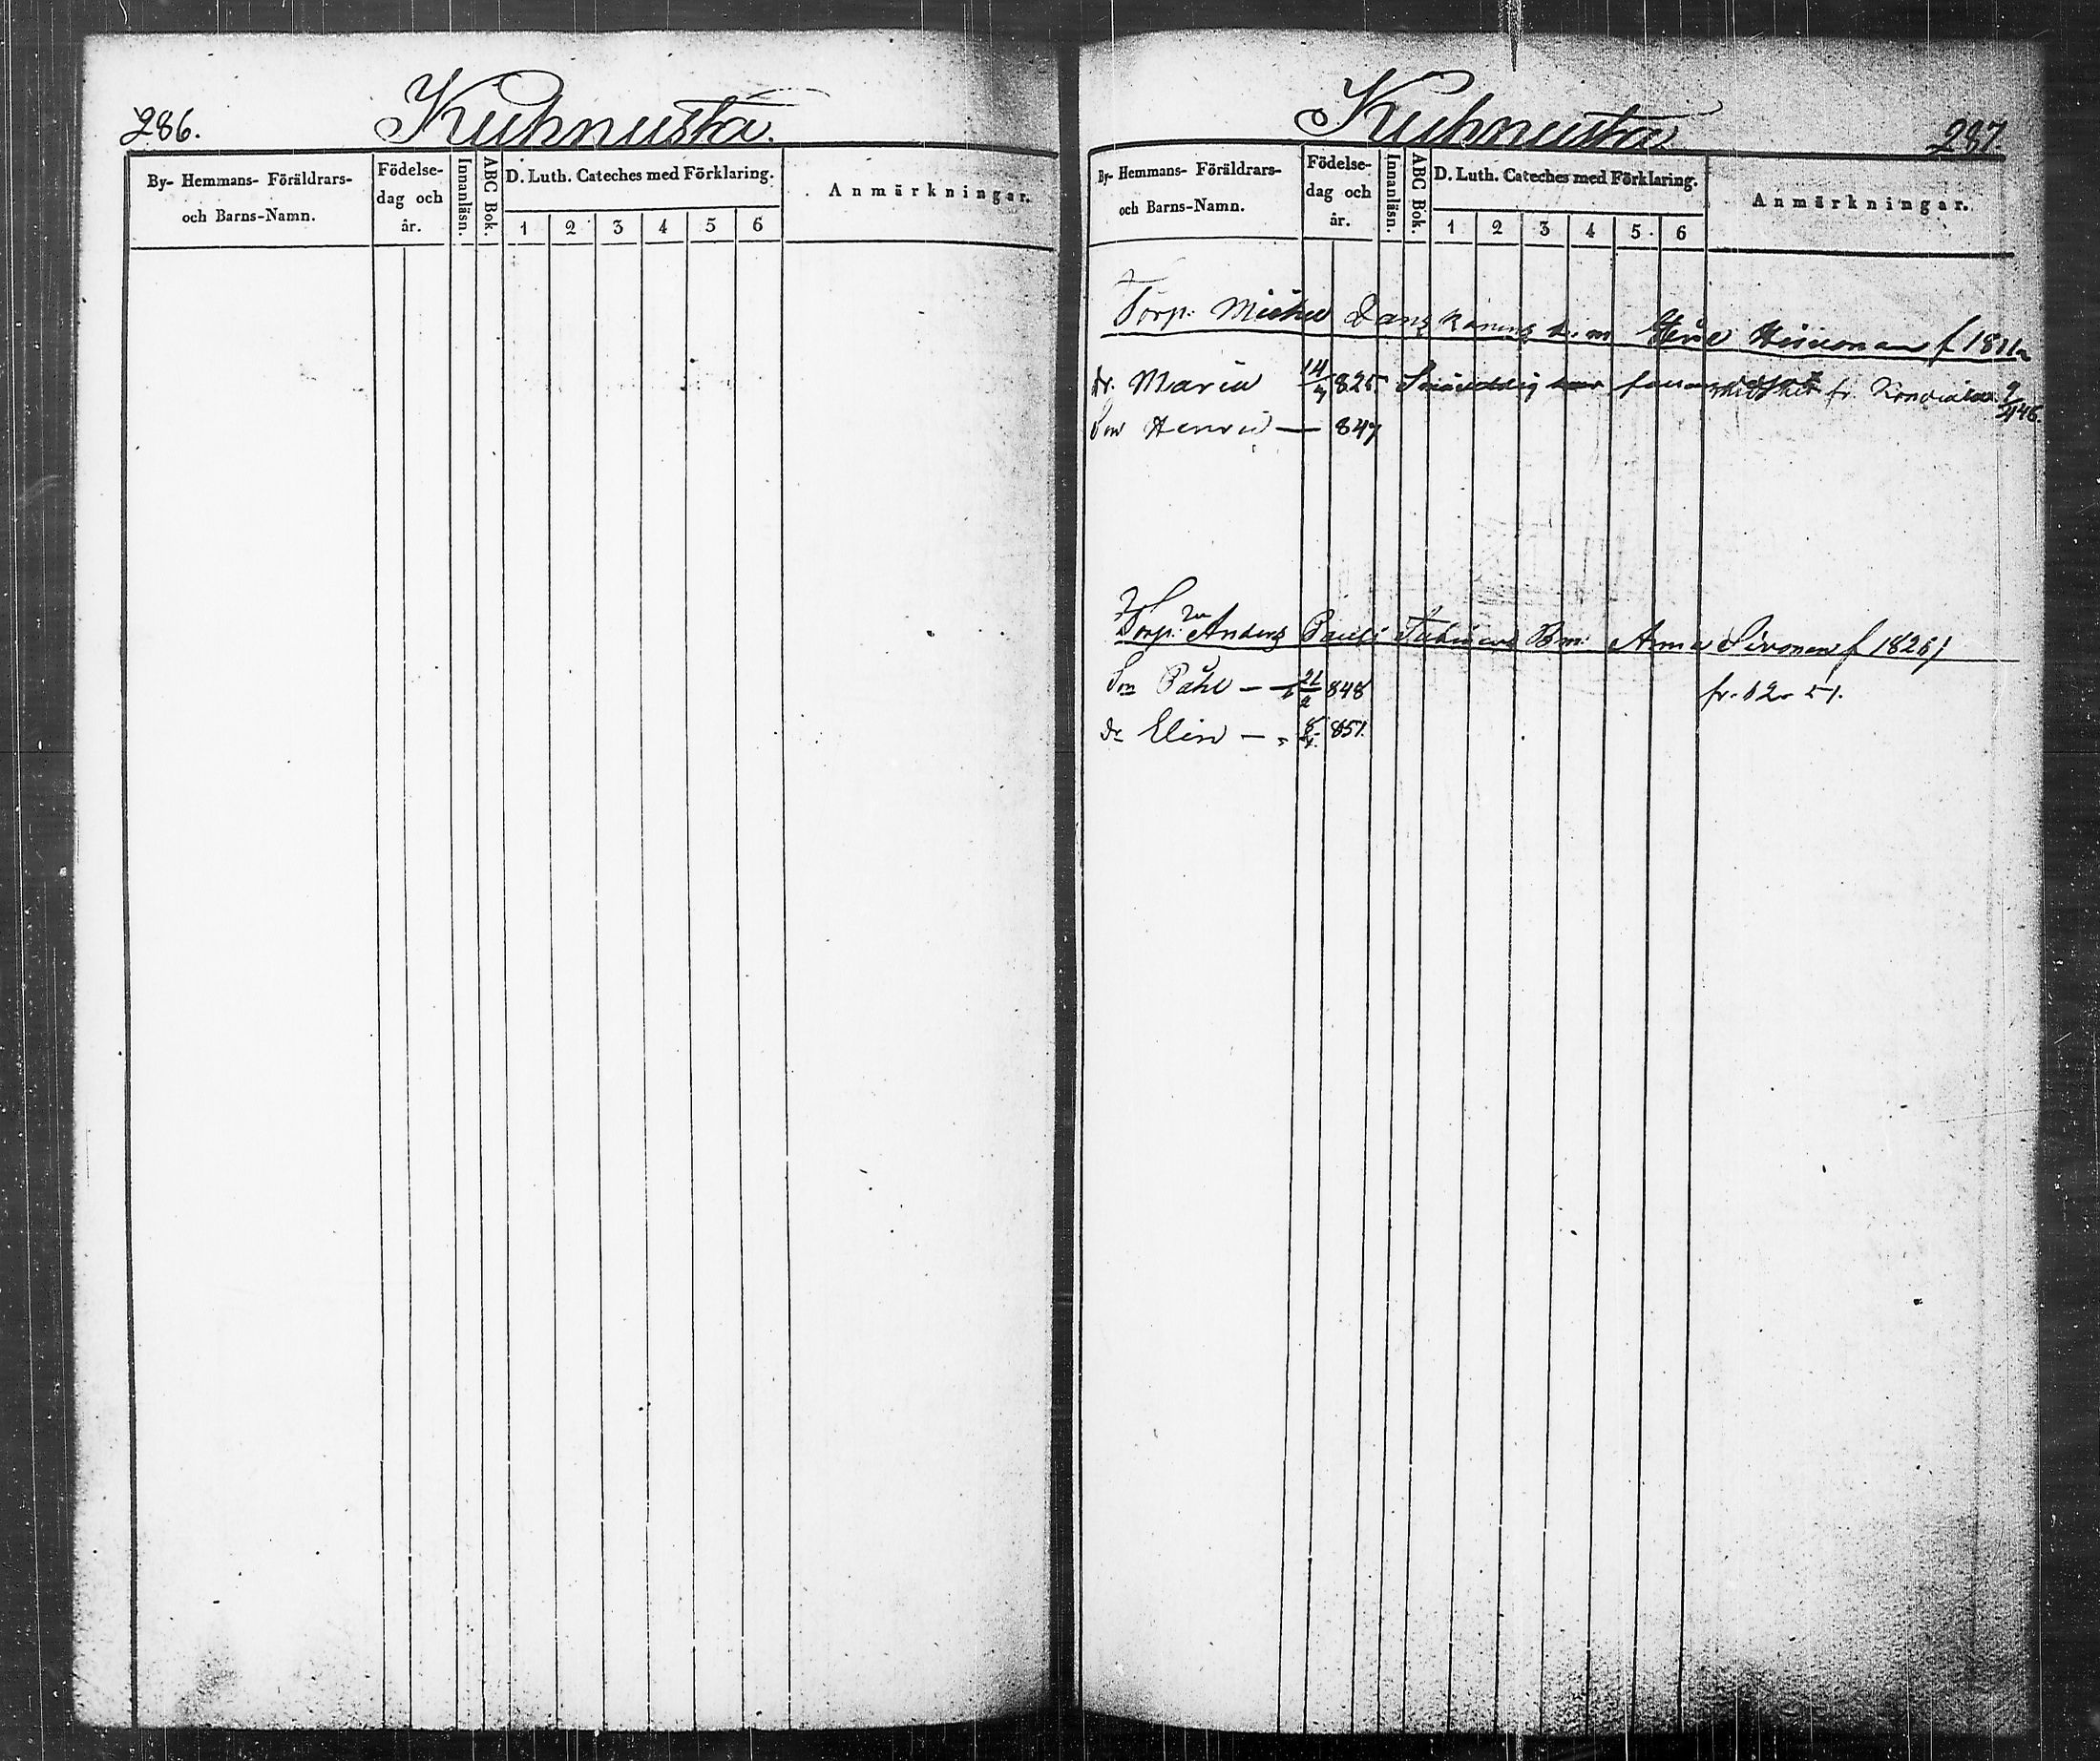 286.
Kuhnusta.
By- Hemmans- Föräldrars-
och Barns-Namn.
Födelse-
dag och
år.
Innanläsn.
ABC Bok.
D. Luth. Cateches med Förklaring.
1 2 3 4 5 6
Anmärkningar.
Kuhnusta
287.
By- Hemmans- Föräldrars-
och Barns-Namn.
Födelse-
dag och
år.
Innanläsn.
ABC Bok.
D. Luth. Cateches med Förklaring.
1 2 3 4 5 6
Anmärkningar.
Torp: Michel Danskanens f 1811
dr. Maria 14/7 825 fr.
Son Henric — 847
Torp: Anders Anna Sivonen f 1826
Son Påhl — 21/2 848 fr. 12 51.
dr Elin — 851.